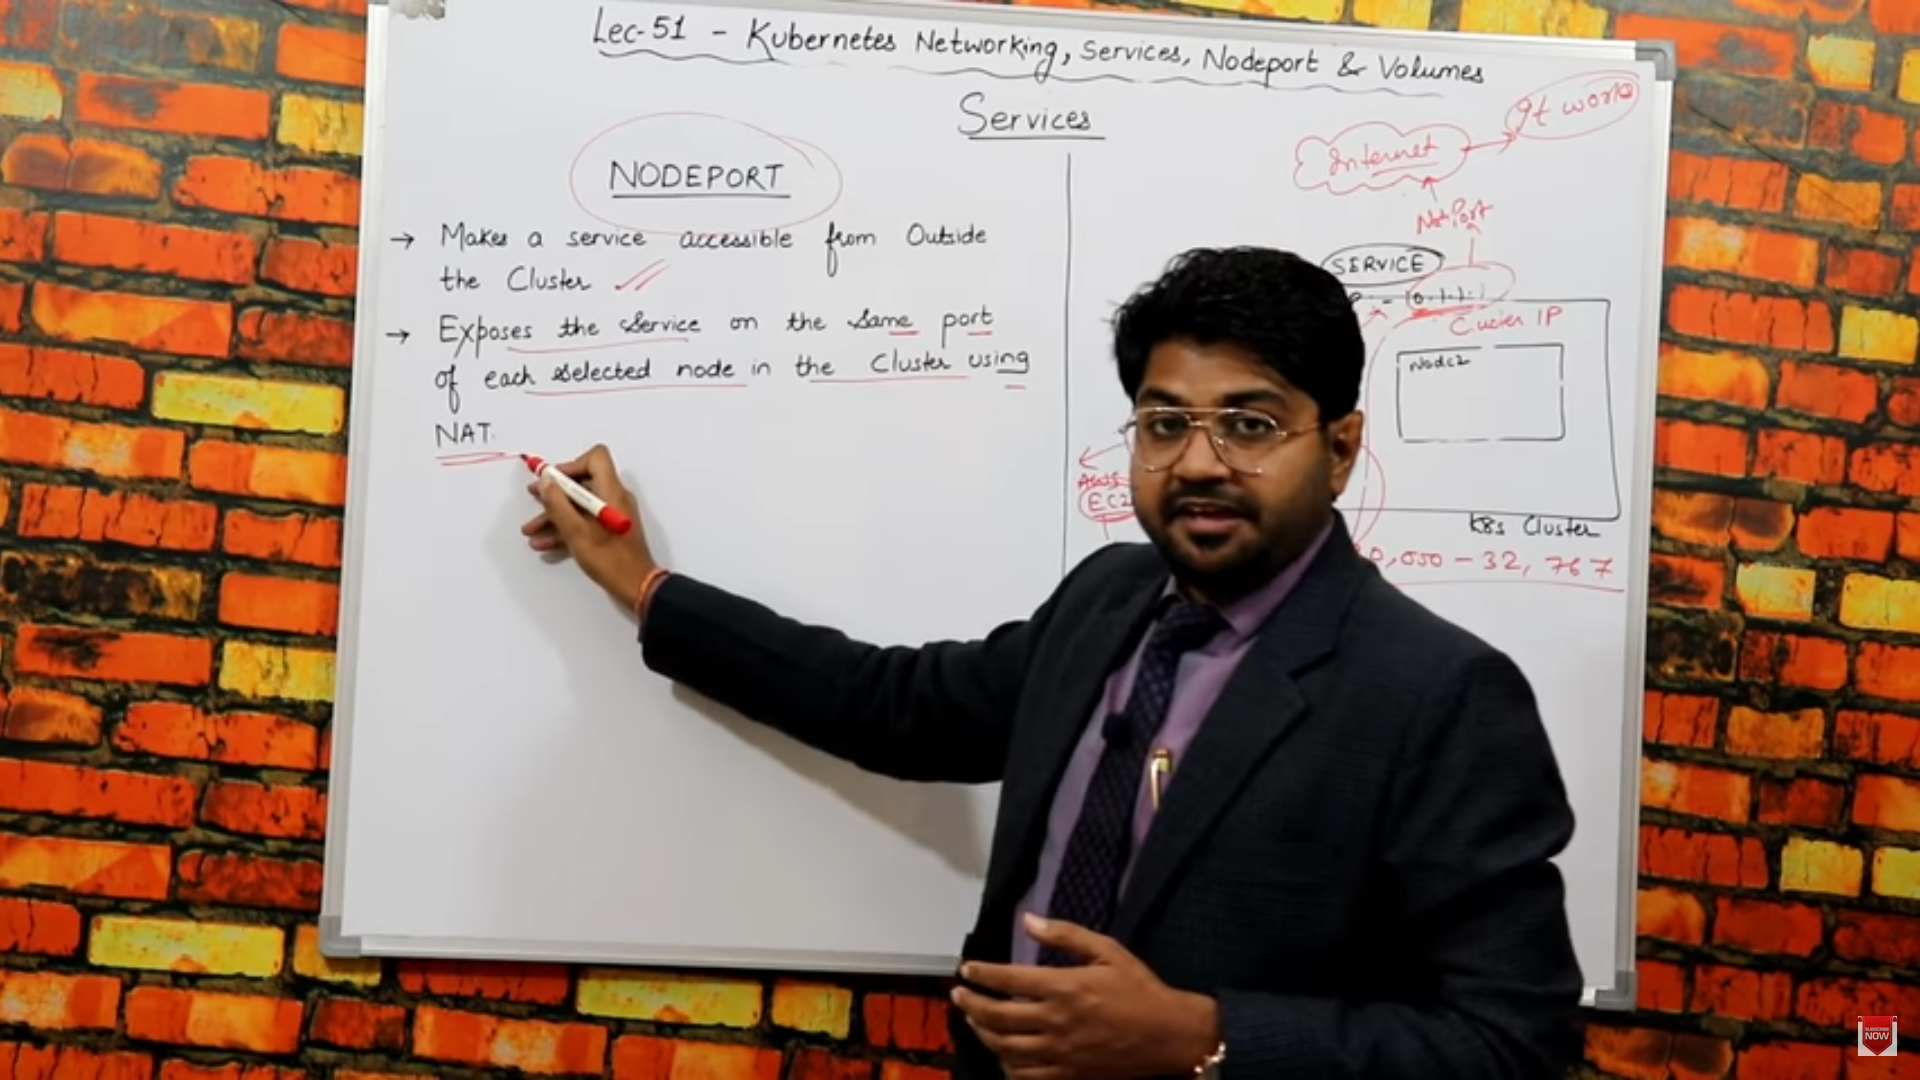 Lec-51 - Kubernetes Networking, Services, Nodeport & Volumes
Services
NODEPORT
→ Makes a service accessible from Outside
the Cluster
→ Exposes the Service on the Same port
of each selected node in the Cluster using
NAT.
It works
Internet
SERVICE
Node2
EC2
K8s Cluster
- 32, 767
SUBSCRIBE
NOW